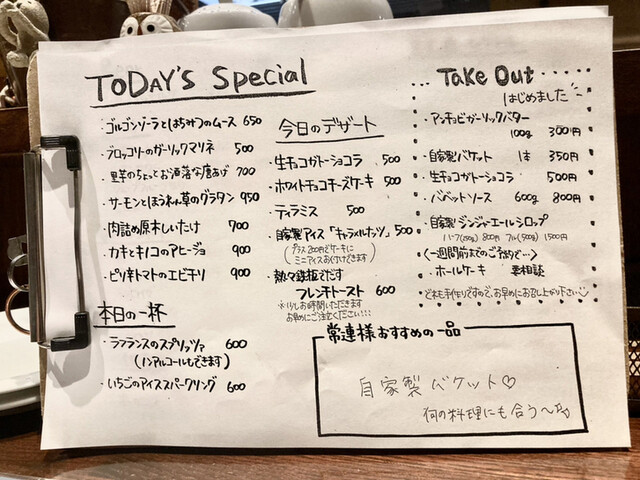 TODAY'S Special
・ゴルゴンゾーラとはちみつのムース 650
・ブロッコリーのガーリックマリネ 500
・里芋のちょっとお洒落な唐あげ 700
・サーモンとほうれん草のグラタン 950
・肉詰め原木しいたけ 700
・カキとキノコのアヒージョ 900
・ピリ辛トマトのエビチリ 900
本日の一杯
・ラフランスのスプリッツァ 600
(ノンアルコールもできます)
・いちごのアイススパークリング 600
今日のデザート
・生チョコガトーショコラ 500
・ホワイトチョコチーズケーキ 500
・ティラミス 500
・自家製アイス「キャラメルナッツ」 500
(プラス200円でケーキに
ミニアイスおつけできます)
・熱々鉄板でだす
フレンチトースト 600
※少しお時間いただきます
お早めにご注文ください!!!
Take Out
はじめました
・アンチョビガーリックバター
100g 300円
・自家製バケット 1本 350円
・生チョコガトーショコラ 500円
・バベットソース 600g 800円
・自家製ジンジャーエールシロップ
ハーフ(250g) 800円 フル(500g) 1500円
〈一週間前までのご予約で…〉
・ホールケーキ 要相談
どれも手作りですので、お早めにお召し上がり下さい
常連様おすすめの一品
自家製バケット♡
何の料理にも合う〜